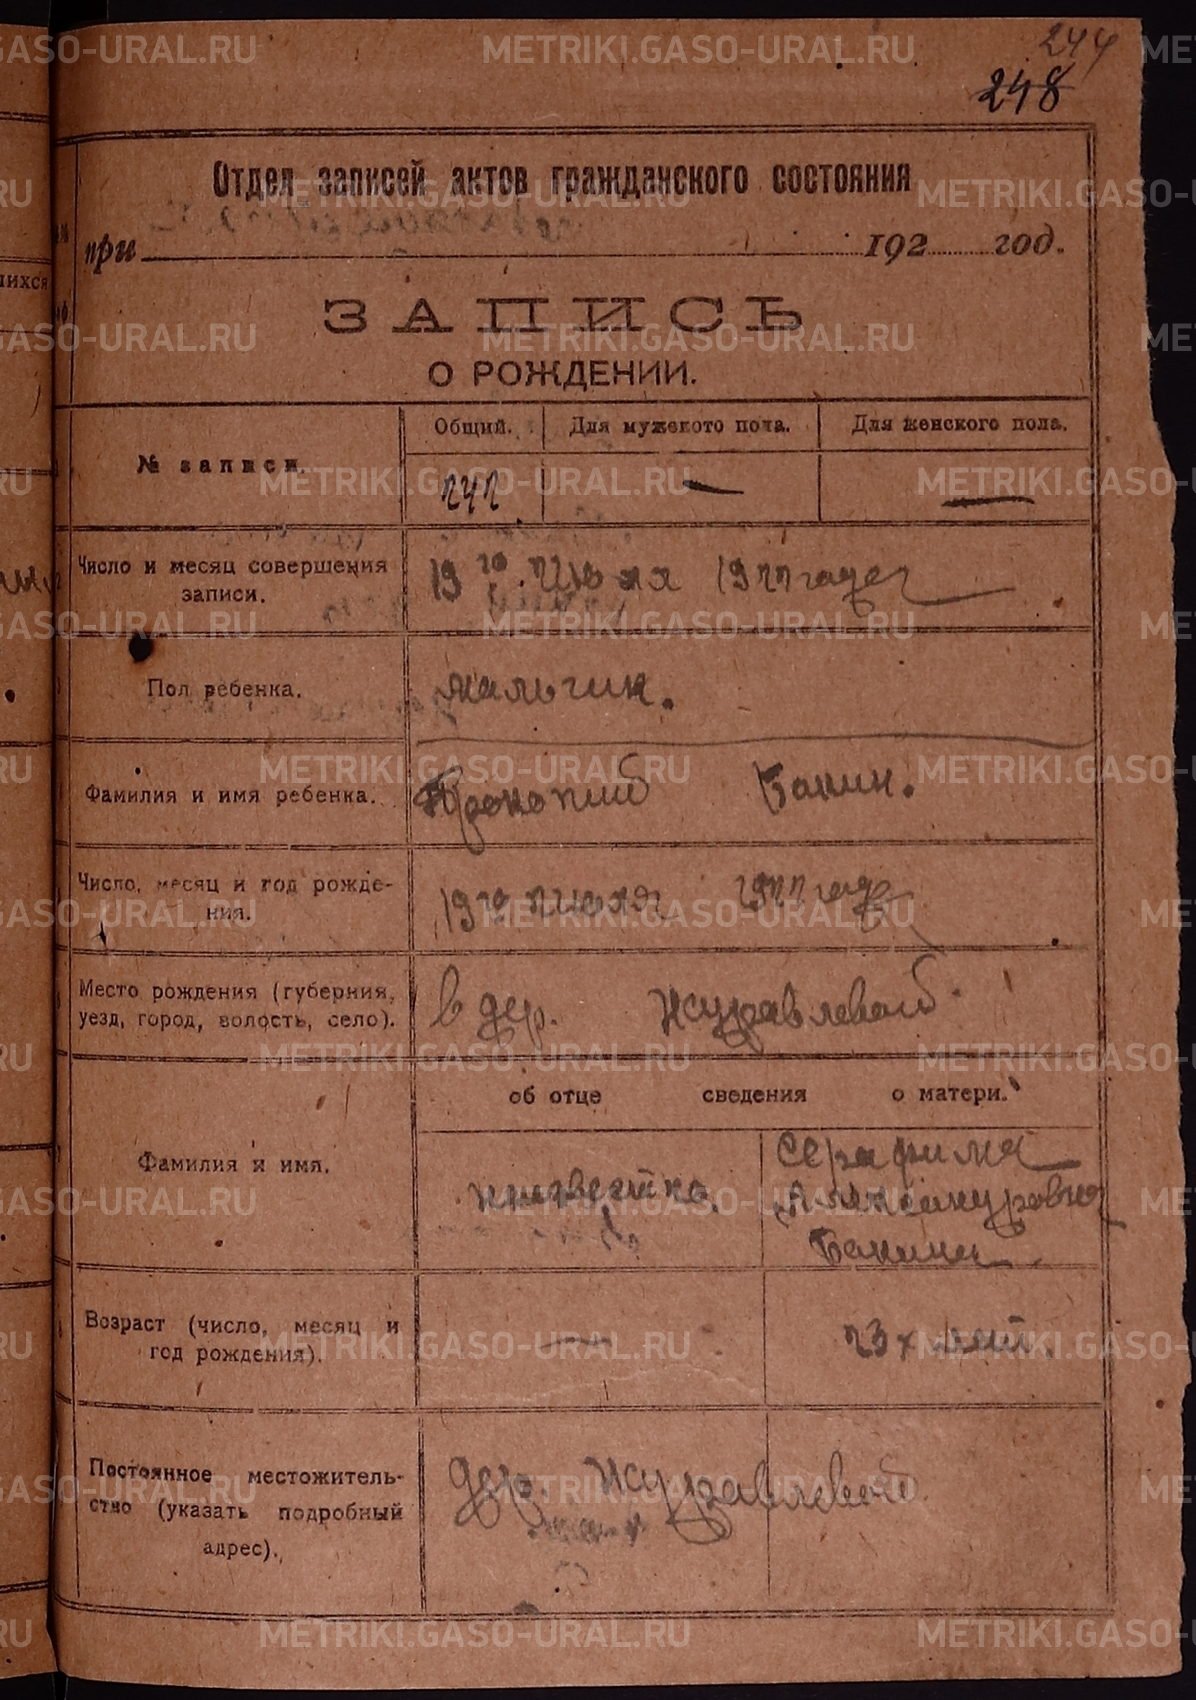 244
248
Отдел записей актов гражданского состояния
при 192 год.
ЗАПИСЬ
О РОЖДЕНИИ.
№ записи.
Общий. Для мужского пола. Для женского пола.
242 — —
Число и месяц совершения
записи.
19го июля 1922 года
Пол ребенка.
мальчик.
Фамилия и имя ребенка.
Прокопий Банин.
Число, месяц и год рожде-
ния.
19го июля 1922 года
Место рождения (губерния,
уезд, город, волость, село).
в дер. Журавлевой
об отце сведения о матери.
Фамилия и имя.
неизвестно.
Серафима
Банина
Возраст (число, месяц и
год рождения).
— 23х лет.
Постоянное местожитель-
ство (указать подробный
адрес).
дер. Журавлевой
METRIKI.GASO-URAL.RU